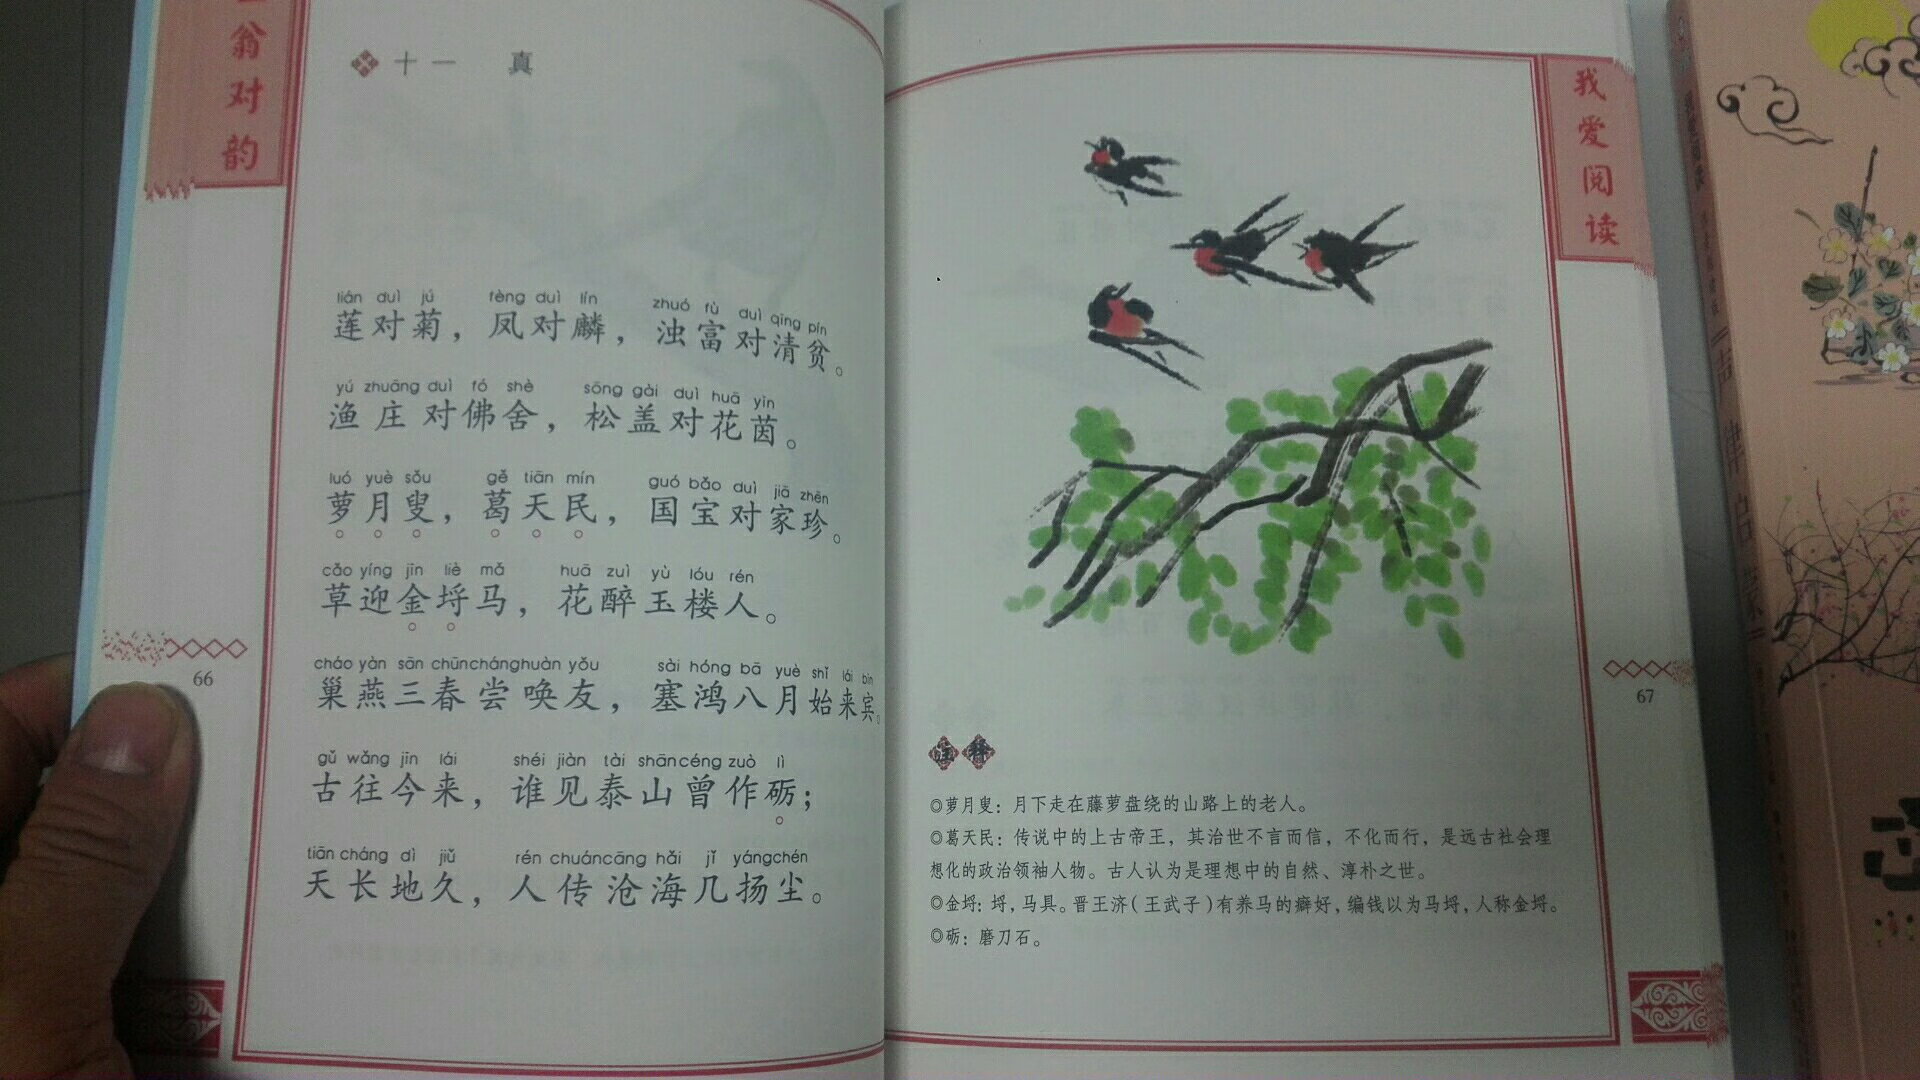 翁对韵
十一 真
lián duì jú fèng duì lín zhuó fù duì qīng pín
莲对菊，凤对麟，浊富对清贫。
yú zhuāng duì fó shè sōng gài duì huā yīn
渔庄对佛舍，松盖对花茵。
luó yuè sǒu gě tiān mín guó bǎo duì jiā zhēn
萝月叟，葛天民，国宝对家珍。
cǎo yíng jīn liè mǎ huā zuì yù lóu rén
草迎金埒马，花醉玉楼人。
cháo yàn sān chūn cháng huàn yǒu sài hóng bā yuè shǐ lái bīn
巢燕三春尝唤友，塞鸿八月始来宾。
gǔ wǎng jīn lái shéi jiàn tài shān céng zuò lì
古往今来，谁见泰山曾作砺；
tiān cháng dì jiǔ rén chuán cāng hǎi jǐ yáng chén
天长地久，人传沧海几扬尘。
66
我爱阅读
注释
◎萝月叟：月下走在藤萝盘绕的山路上的老人。
◎葛天民：传说中的上古帝王，其治世不言而信，不化而行，是远古社会理
想化的政治领袖人物。古人认为是理想中的自然、淳朴之世。
◎金埒：埒，马具。晋王济（王武子）有养马的癖好，编钱以为马埒，人称金埒。
◎砺：磨刀石。
67
声律启蒙